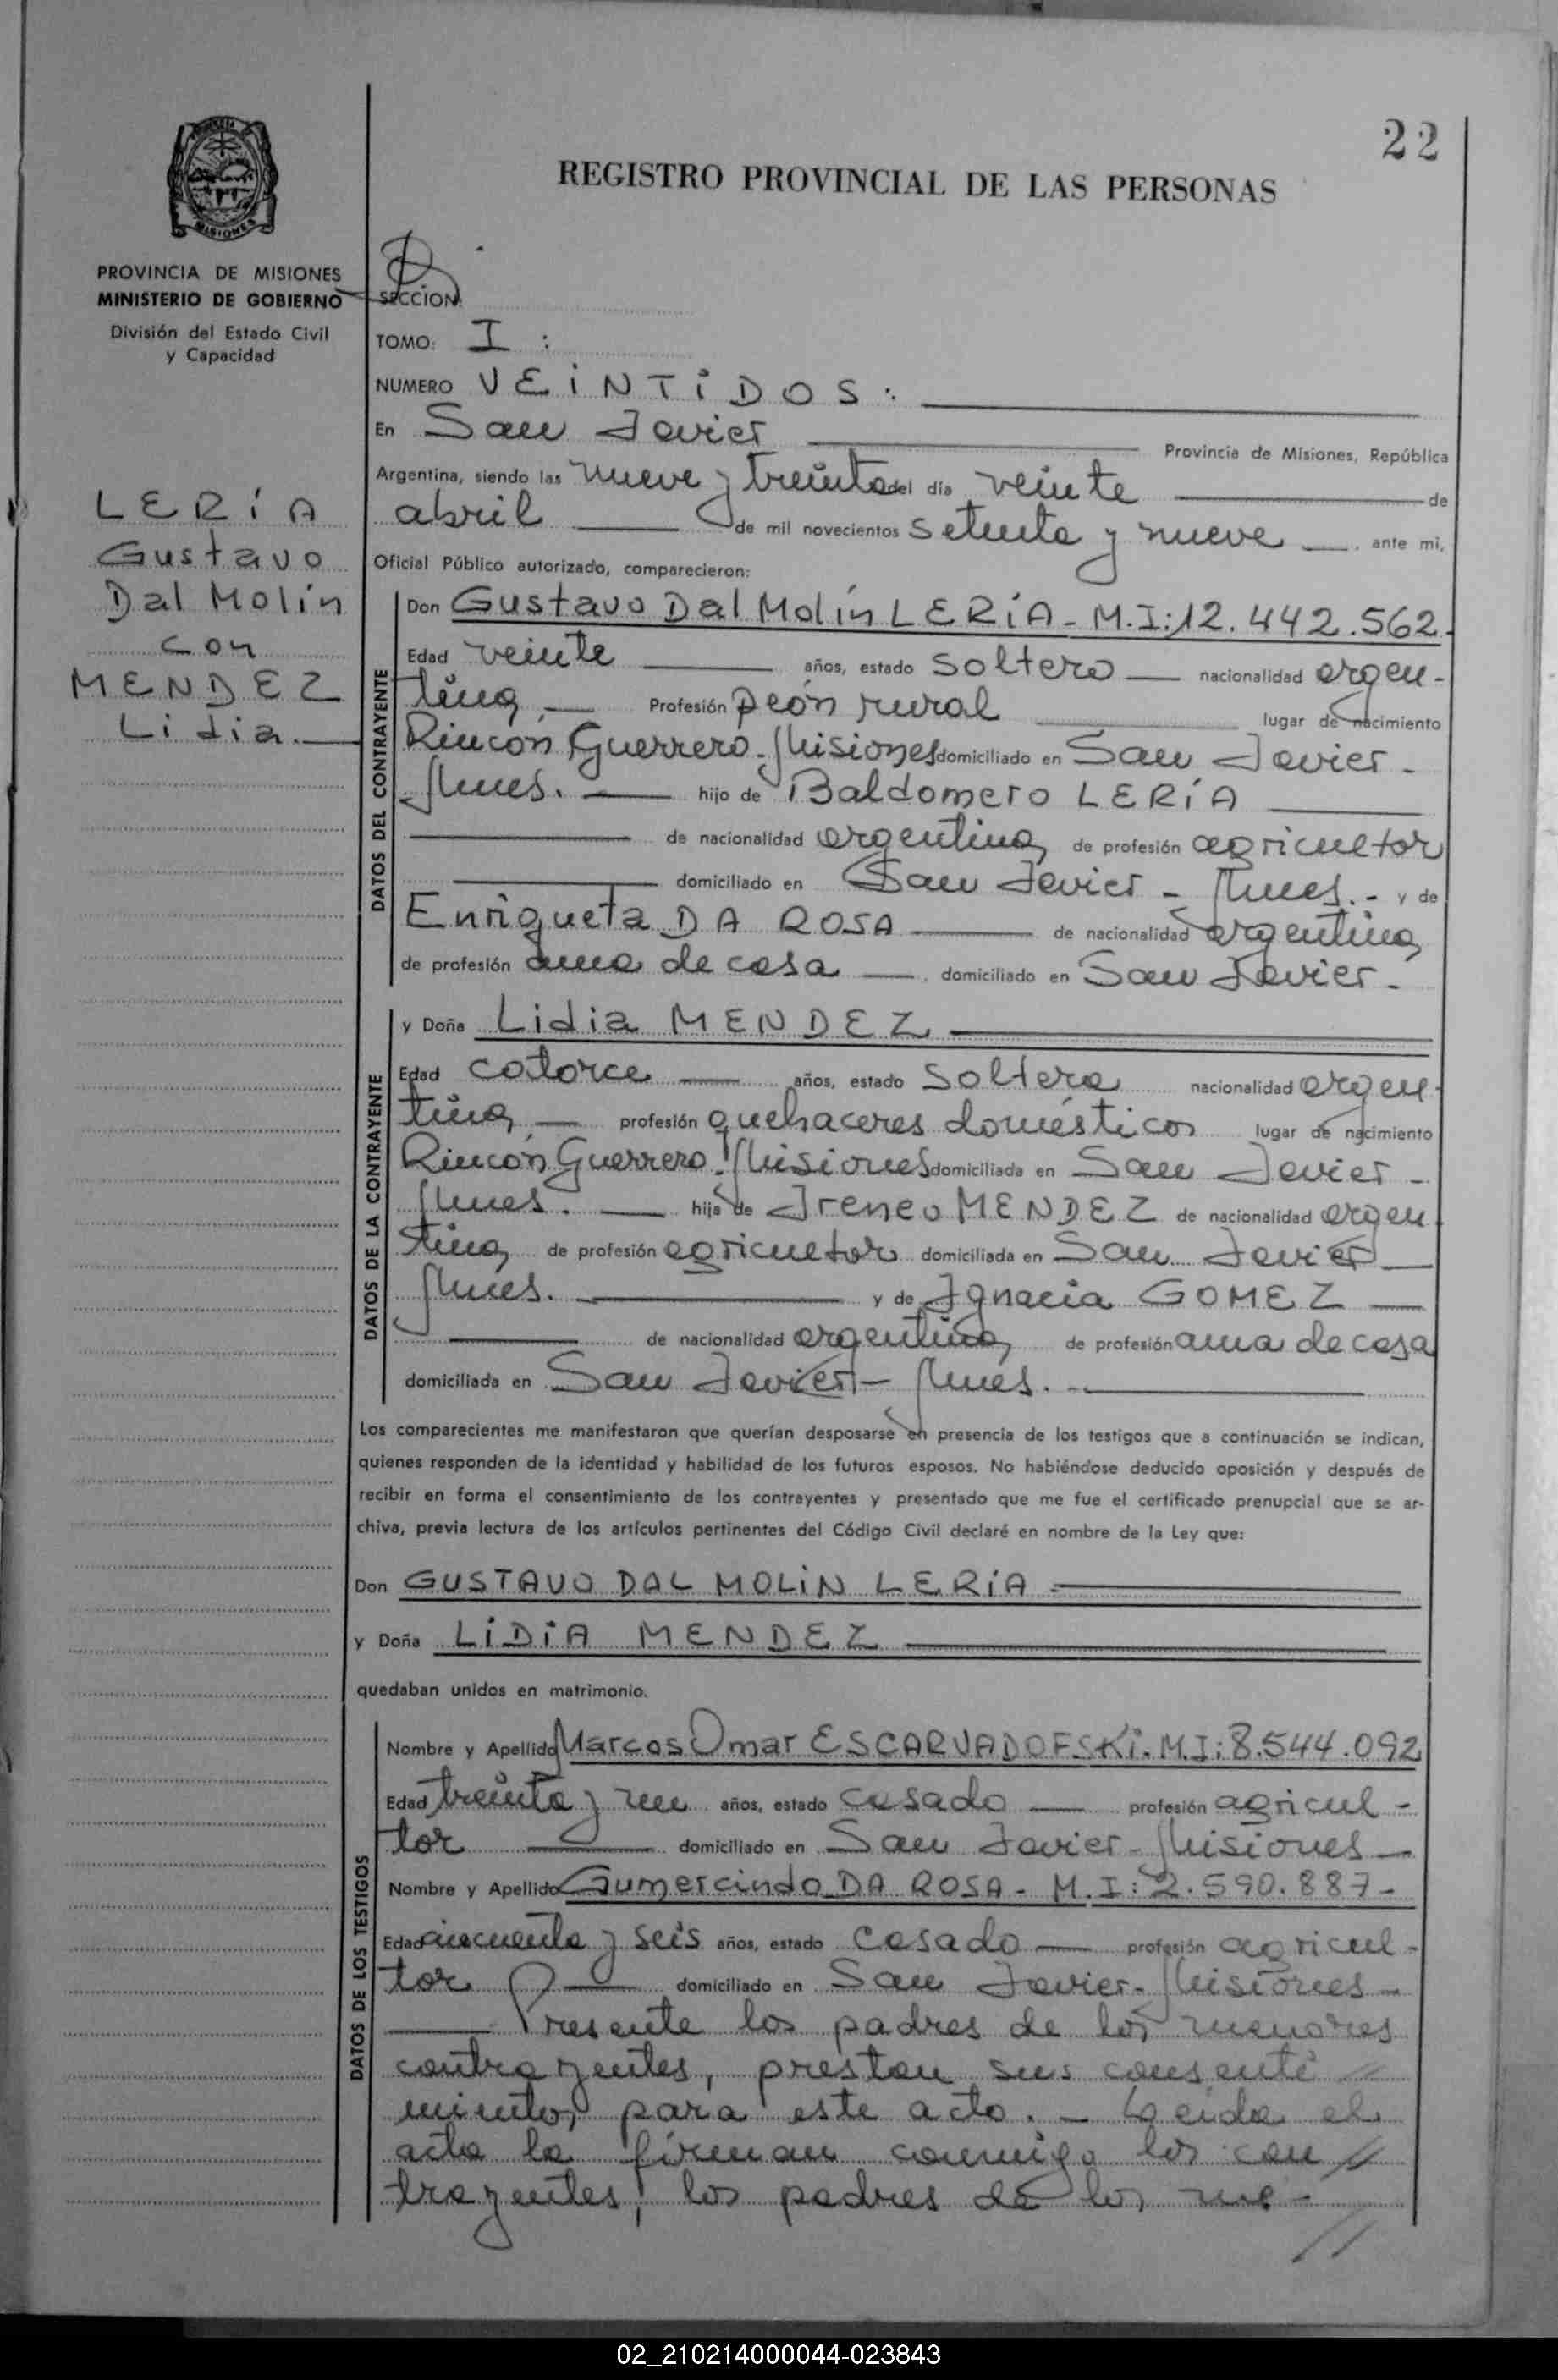 22
REGISTRO PROVINCIAL DE LAS PERSONAS
PROVINCIA DE MISIONES
MINISTERIO DE GOBIERNO
División del Estado Civil
y Capacidad
LERÍA
Gustavo
Dal Molín
con
MENDEZ
Lidia.
SECCION:
TOMO: I :
NUMERO VEINTIDOS:
En San Javier Provincia de Misiones, República
Argentina, siendo las nueve y treinta del día veinte de
abril de mil novecientos setenta y nueve . ante mi,
Oficial Público autorizado, comparecieron:
DATOS DEL CONTRAYENTE
Don Gustavo Dal Molín LERÍA - M.I:12.442.562.
Edad veinte años, estado soltero nacionalidad argen-
tina, Profesión peón rural lugar de nacimiento
Rincón Guerrero-Misiones domiciliado en San Javier-
Mnes. hijo de Baldomero LERÍA
de nacionalidad argentina, de profesión agricultor
domiciliado en San Javier - Mnes. - y de
Enriqueta DA ROSA de nacionalidad argentina,
de profesión ama de casa . domiciliado en San Javier.
DATOS DE LA CONTRAYENTE
y Doña Lidia MENDEZ
Edad catorce años, estado soltera nacionalidad argen-
tina, profesión quehaceres domésticos lugar de nacimiento
Rincón Guerrero-Misiones domiciliada en San Javier-
Mnes. hija de Ireneo MENDEZ de nacionalidad argen-
tina, de profesión agricultor domiciliada en San Javier
Mnes. y de Ignacia GOMEZ
de nacionalidad argentina, de profesión ama de casa
domiciliada en San Javier - Mnes. -
Los comparecientes me manifestaron que querían desposarse en presencia de los testigos que a continuación se indican,
quienes responden de la identidad y habilidad de los futuros esposos. No habiéndose deducido oposición y después de
recibir en forma el consentimiento de los contrayentes y presentado que me fue el certificado prenupcial que se ar-
chiva, previa lectura de los artículos pertinentes del Código Civil declaré en nombre de la Ley que:
Don GUSTAVO DAL MOLIN LERÍA
y Doña LIDIA MENDEZ
quedaban unidos en matrimonio.
DATOS DE LOS TESTIGOS
Nombre y Apellido Marcos Omar ESCARVADOFSKI. M.I:8.544.092
Edad treinta y un años, estado casado profesión agricul-
tor domiciliado en San Javier-Misiones
Nombre y Apellido Gumercindo DA ROSA - M.I:2.590.887-
Edad cincuenta y seis años, estado casado profesión agricul-
tor domiciliado en San Javier-Misiones-
Presente los padres de los menores
contrayentes, prestan sus consenti //
miento, para este acto. - Leida el
acta la firman conmigo los con //
trayentes, los padres de los me-
//
02_210214000044-023843